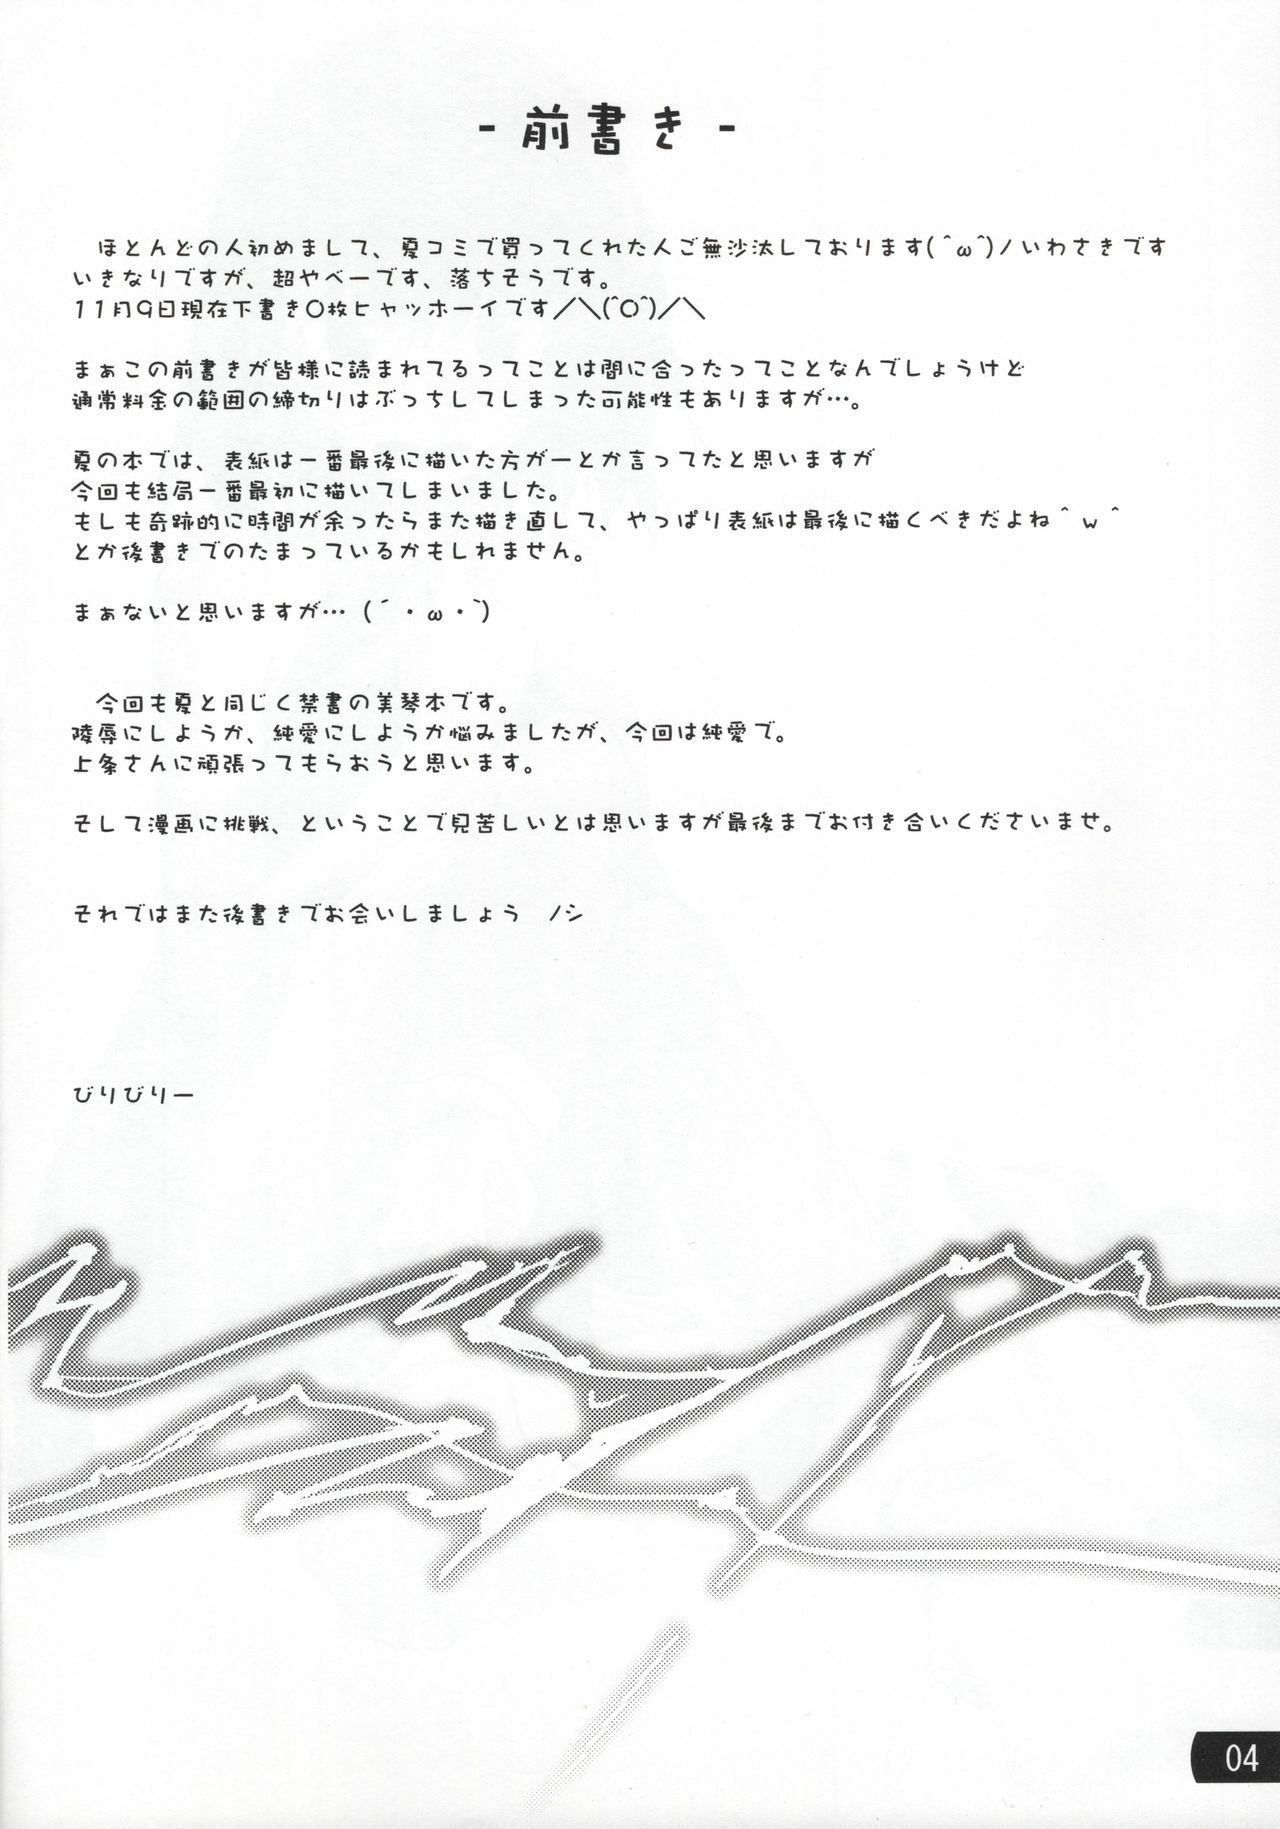 - 前書き -
ほとんどの人初めまして、夏コミで買ってくれた人ご無沙汰しております(^ω^)ノいわさきです
いきなりですが、超やべーです、落ちそうです。
11月9日現在下書き〇枚ヒャッホーイです／＼(^O^)／＼
まぁこの前書きが皆様に読まれてるってことは間に合ったってことなんでしょうけど
通常料金の範囲の締切りはぶっちしてしまった可能性もありますが…。
夏の本では、表紙は一番最後に描いた方がーとか言ってたと思いますが
今回も結局一番最初に描いてしまいました。
もしも奇跡的に時間が余ったらまた描き直して、やっぱり表紙は最後に描くべきだよね＾ｗ＾
とか後書きでのたまっているかもしれません。
まぁないと思いますが… (´・ω・`)
今回も夏と同じく禁書の美琴本です。
陵辱にしようか、純愛にしようか悩みましたが、今回は純愛で。
上条さんに頑張ってもらおうと思います。
そして漫画に挑戦、ということで見苦しいとは思いますが最後までお付き合いくださいませ。
それではまた後書きでお会いしましょう ノシ
びりびりー
04